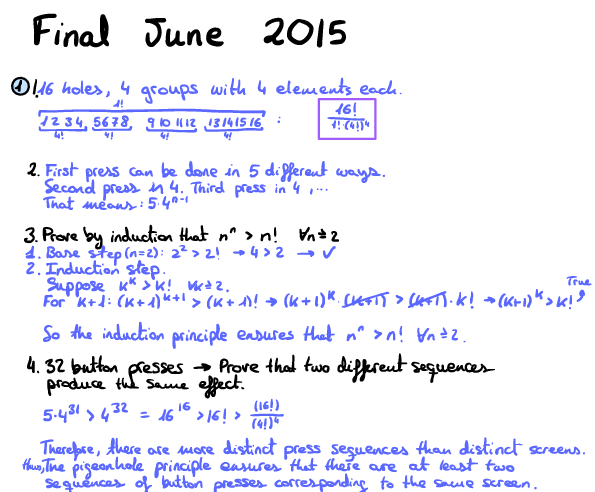 Final June 2015
1) 1. 16 holes, 4 groups with 4 elements each.
1!
1 2 3 4, 5 6 7 8, 9 10 11 12, 13 14 15 16 : 16! / 1!·(4!)⁴
4! 4! 4! 4!
2. First press can be done in 5 different ways.
Second press in 4. Third press in 4, ...
That means: 5·4ⁿ⁻¹
3. Prove by induction that nⁿ > n! ∀n≥2
1. Base step (n=2): 2² > 2! → 4 > 2 → ✓
2. Induction step.
Suppose kᵏ > k! ∀k≥2.
True
For k+1: (k+1)ᵏ⁺¹ > (k+1)! → (k+1)ᵏ·(k+1) > (k+1)·k! → (k+1)ᵏ > k!
So the induction principle ensures that nⁿ > n! ∀n≥2.
4. 32 button presses → Prove that two different sequences
produce the same effect.
5·4³¹ > 4³² = 16¹⁶ > 16! > (16!) / (4!)⁴
Therefore, there are more distinct press sequences than distinct screens.
thus, The pigeonhole principle ensures that there are at least two
sequences of button presses corresponding to the same screen.